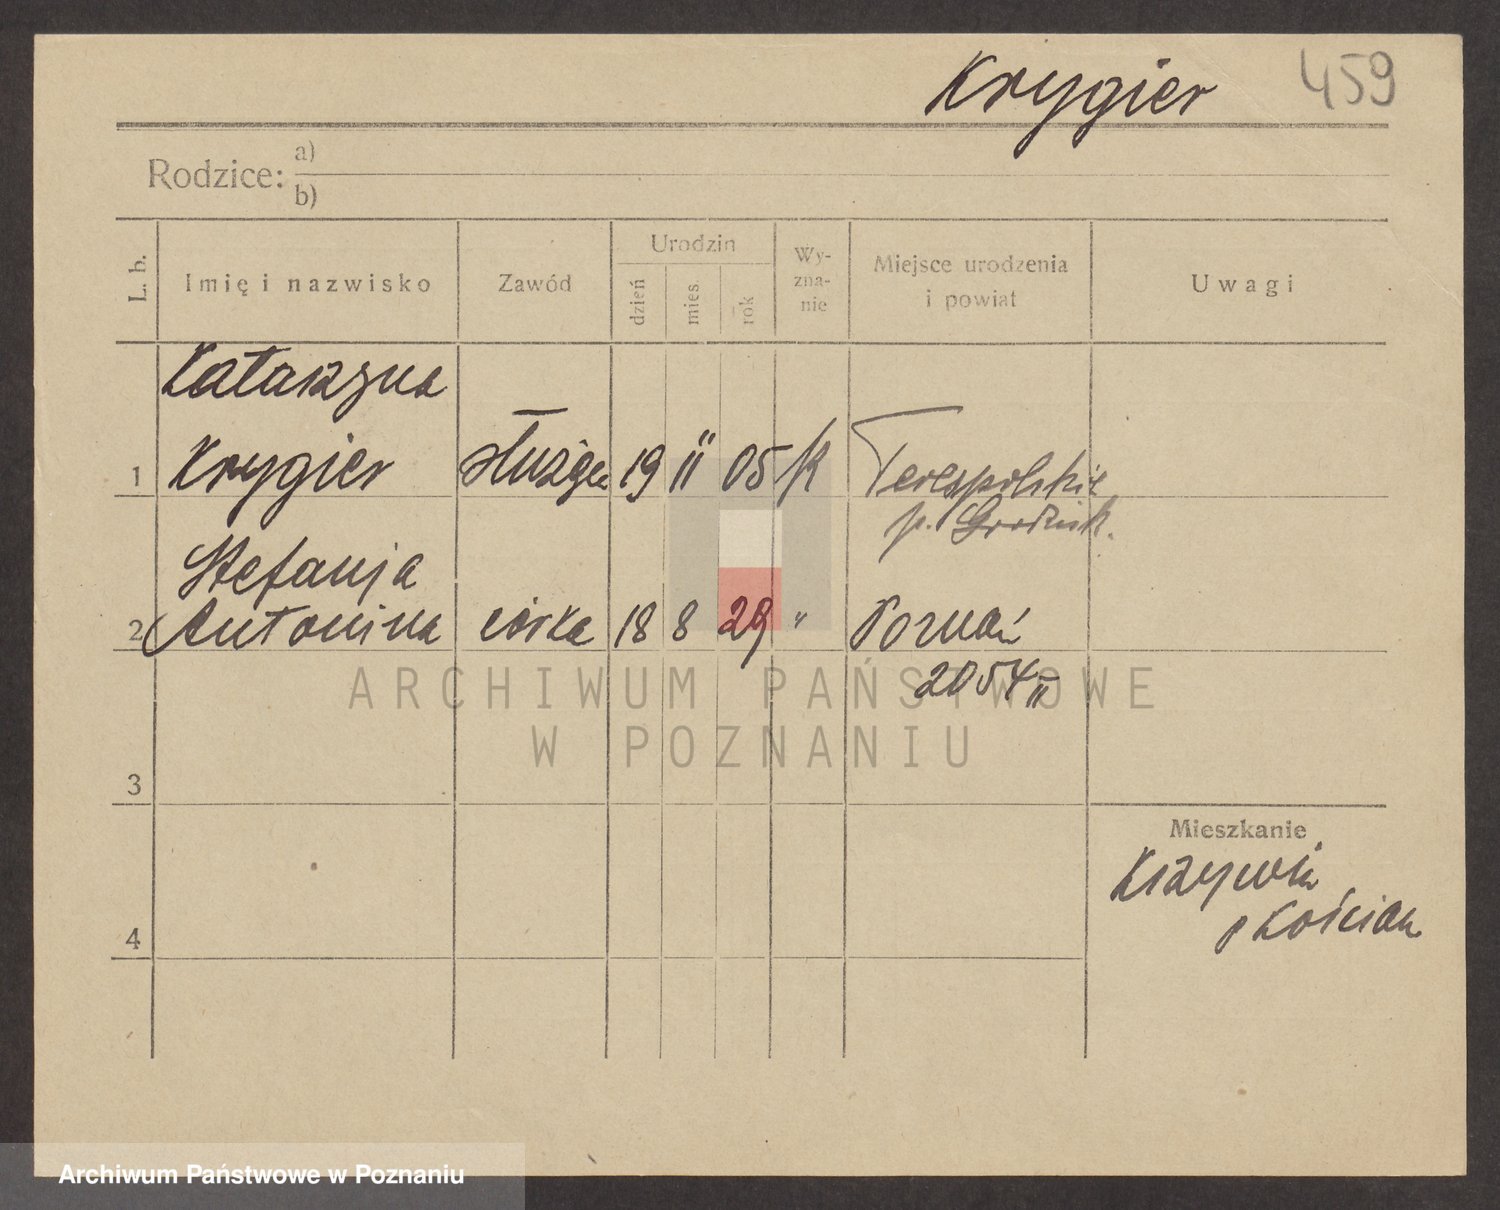 Krygier 459
Rodzice: a)
b)
L. b. Imię i nazwisko Zawód Urodzin dzień mies. rok Wy-zna-nie Miejsce urodzenia i powiat Uwagi
Katarzyna
1 Krygier służąca 19 II 05 K Terespolskie
p. Grodzisk.
Stefanja
2 Antonina córka 18 8 29 " Poznań
2054 II
ARCHIWUM PAŃSTWOWE
W POZNANIU
3
Mieszkanie
Krzywiń
p Kościan
4
Archiwum Państwowe w Poznaniu